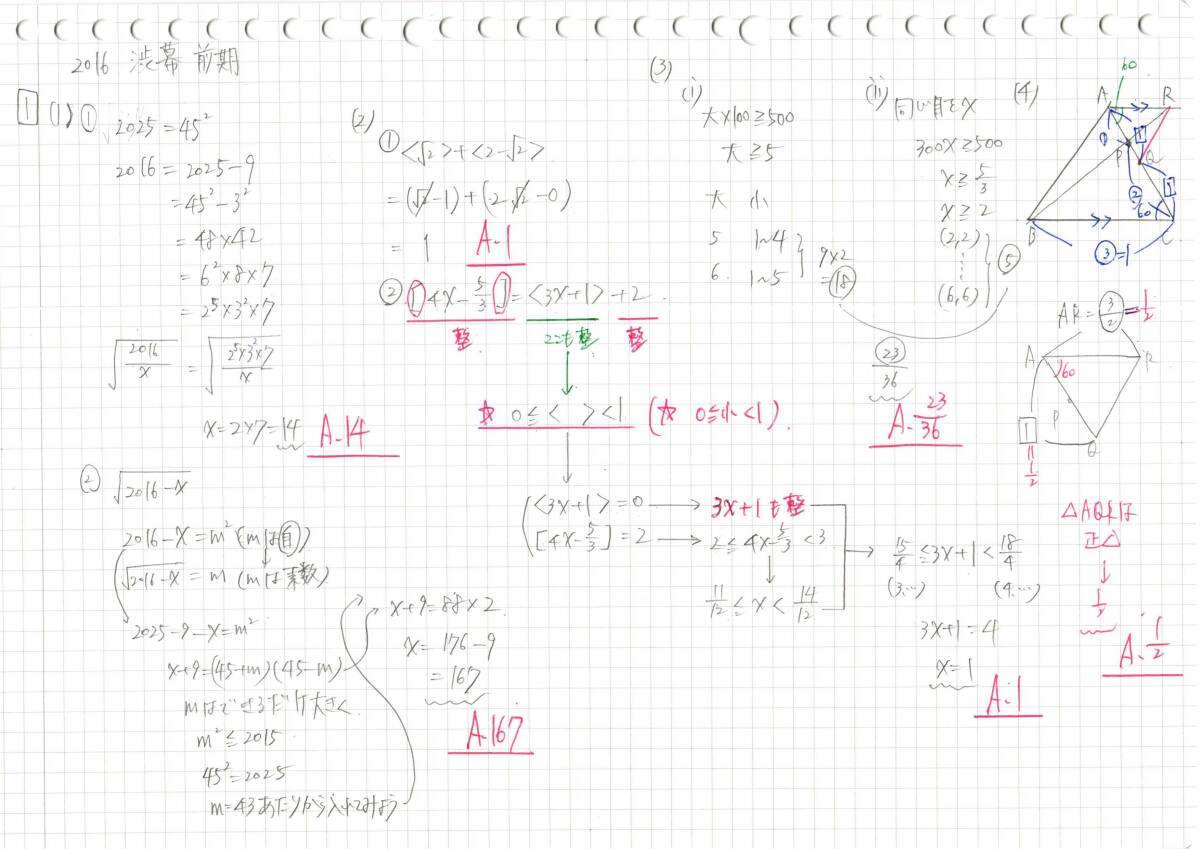 2016 渋幕 前期
1 (1) ①
2025=45²
2016=2025-9
=45²-3²
=48×42
=6²×8×7
=2⁵×3²×7
√(2016/x) = √(2⁵×3²×7/x)
x=2×7=14 A.14
② √(2016-x)
2016-x=m² (mは自)
√(2016-x)=m (mは素数)
2025-9-x=m²
x+9=(45+m)(45-m)
mはできるだけ大きく
m²≦2015
45²=2025
m=43あたりから入れてみよう
x+9=88×2
x=176-9
=167
A.167
(2)
① <√2>+<2-√2>
=(√2-1)+(2-√2-0)
=1 A.1
② [4x-5/3]=<3x+1>+2
整 ここも整 整
☆ 0≦< ><1 (☆ 0≦小<1).
<3x+1>=0 → 3x+1も整
[4x-5/3]=2 → 2≦4x-5/3<3
11/12≦x<14/12
15/4≦3x+1<18/4
(3.…) (4.…)
3x+1=4
x=1
A.1
(3)
(i)
大×100≧500
大≧5
大 小
5 1~4
6. 1~5
9×2
=18
(ii) 同じ目をx
300x≧500
x≧5/3
x≧2
(2,2)
⋮
(6,6)
⑤
23/36
A.23/36
(4)
60
A R
① 1
P Q
② 1
60
B C
③=1
AR=3/2=1/2
A R
60
P
1
=
1/2
Q
△AQRは
正△
↓
1/2
A.1/2